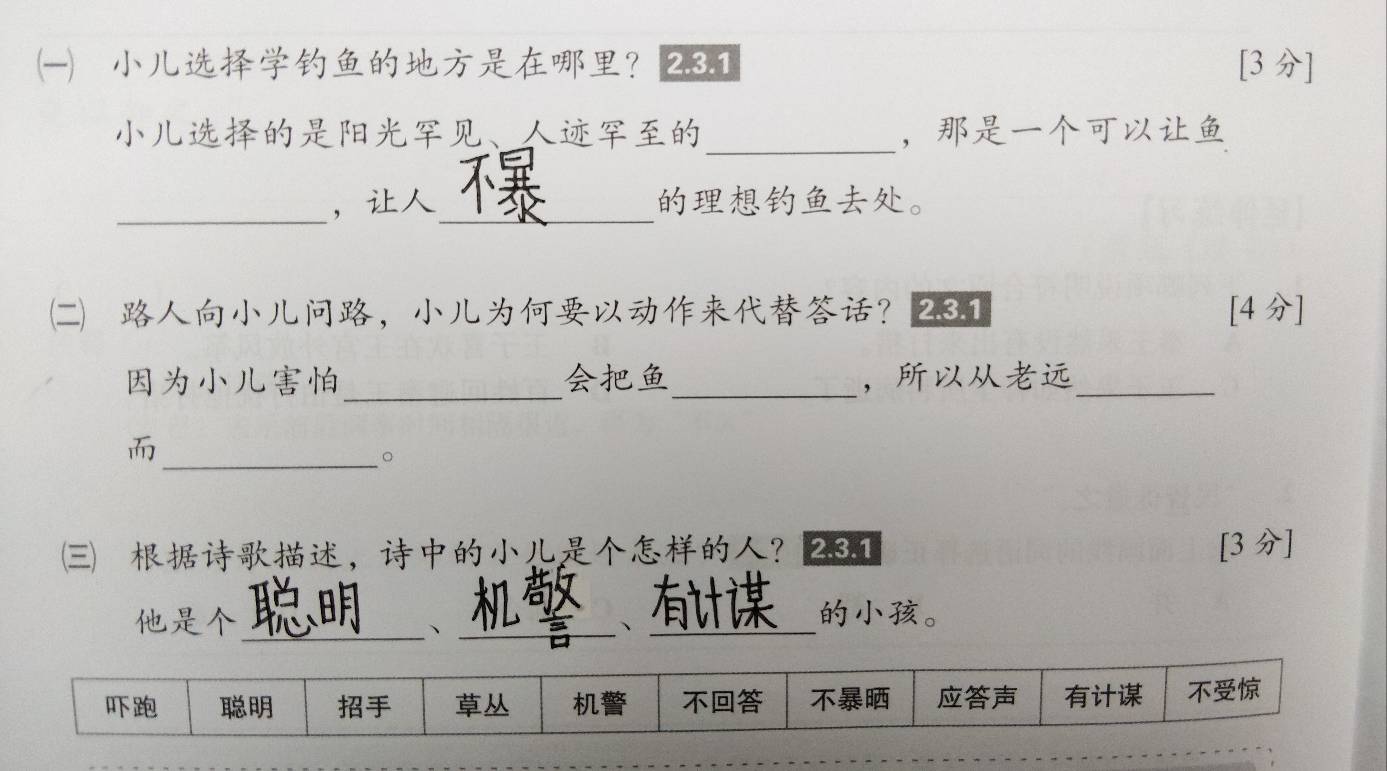 ㈠ 小儿选择学钓鱼的地方是在哪里？ 2.3.1 [3 分]
小儿选择的是阳光罕见、人迹罕至的________，那是一个可以让鱼
________，让人不暴的理想钓鱼去处。
㈡ 路人向小儿问路，小儿为何要以动作来代替答话？ 2.3.1 [4 分]
因为小儿害怕________会把鱼________，所以从老远________
而________。
㈢ 根据诗歌描述，诗中的小儿是个怎样的人？ 2.3.1 [3 分]
他是个聪明、机警、有计谋的小孩。
吓跑 聪明 招手 草丛 机警 不回答 不暴晒 应答声 有计谋 不受惊